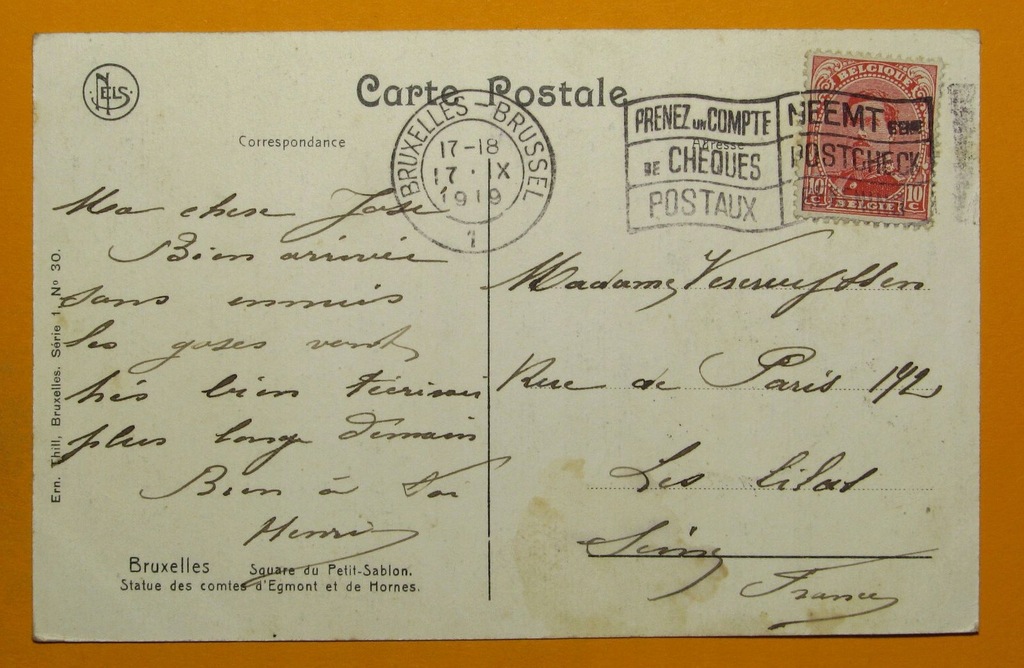 NELS
Carte Postale
Correspondance
Adresse
BRUXELLES BRUSSEL
17-18
17 · IX
1919
1
PRENEZ UN COMPTE
DE CHÈQUES
POSTAUX
NEEMT EENE
POSTCHECK
BELGIQUE
10 C 10 C
BELGIË
Ma chere José
Bien arrivée
sans ennuis
les goses vont
trés bien t'écrirai
plus long demain
Bien à toi
Henri
Madame
Rue de Paris 192
Les Lilas
Seine
France
Ern. Thill, Bruxelles. Série 1 No 30.
Bruxelles Square du Petit-Sablon.
Statue des comtes d'Egmont et de Hornes.